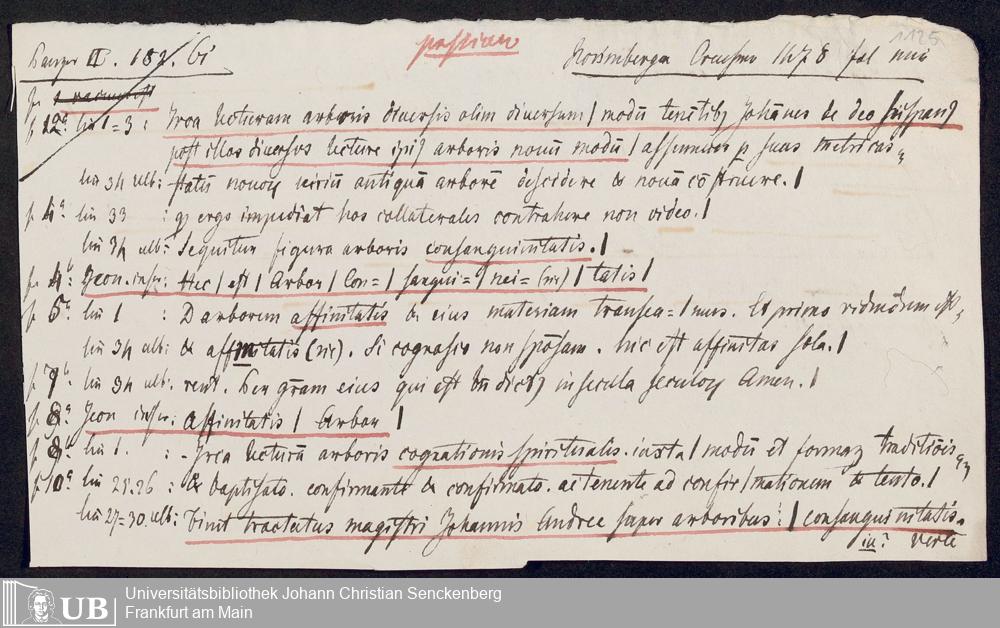 Panzer II. 182. 61
passim
Norimbergae Creusner 1478 fol min
1125
f. 2a lin 1=3 : Irca lecturam arboris diuersis olim diuersum / modū tenētibꝫ Johānes de deo hispanꝰ
post illos diuersos lecture ipiꝰ arboris nouū modū / assumens
lin 34 ult: statū nouoꝝ antiquā arborē descidere & nouā cōstruere. /
f. 4a lin 33 : ergo impediat hos collaterales contrahere non video. /
lin 34 ult: Sequitur figura arboris consanguinitatis. /
f. 4b Icon. infer: Hec / est / Arbor / Con= / sangui= / nei= (sic) / tatis /
f. 5a lin 1 : D arborem affinitatis & eius materiam transea= / mus. Et primo
lin 34 ult: & affinitatis (sic). Si cognosco non spōsam. hic est affinitas sola. /
f. 7b lin 34 ult. rent. Per grām eius qui est in secula seculoꝝ Amen. /
f. 8a Icon infer: Affinitatis / Arbor /
f. 8b lin 1. : Irca lecturā arboris cognationis spiritualis. iuxta / modū et formaꝫ traditiōis
f. 10a lin 25.26 : & baptisato. confirmante & confirmato. ac tenente ad confir / mationem & tento. /
lin 27=30 ult: Finit tractatus magistri Johannis Andree super arboribus: / consanguinitatis.
verte
Universitätsbibliothek Johann Christian Senckenberg
Frankfurt am Main
UB